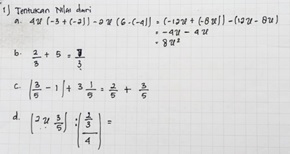 1) Tentukan Nilai dari
a. 4u (-3 + (-2)) - 2u (6 - (-4)) = (-12u + (-8u)) - (12u - 8u)
= -4u - 4u
= 8u²
b. 2/3 + 5 =
c. (3/5 - 1) + 3 1/5 = 2/5 + 3/5
d. (2u 3/5) : (2/3/4) =